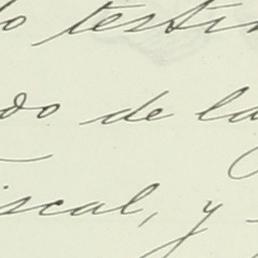 lo testim
do de la
iscal, y